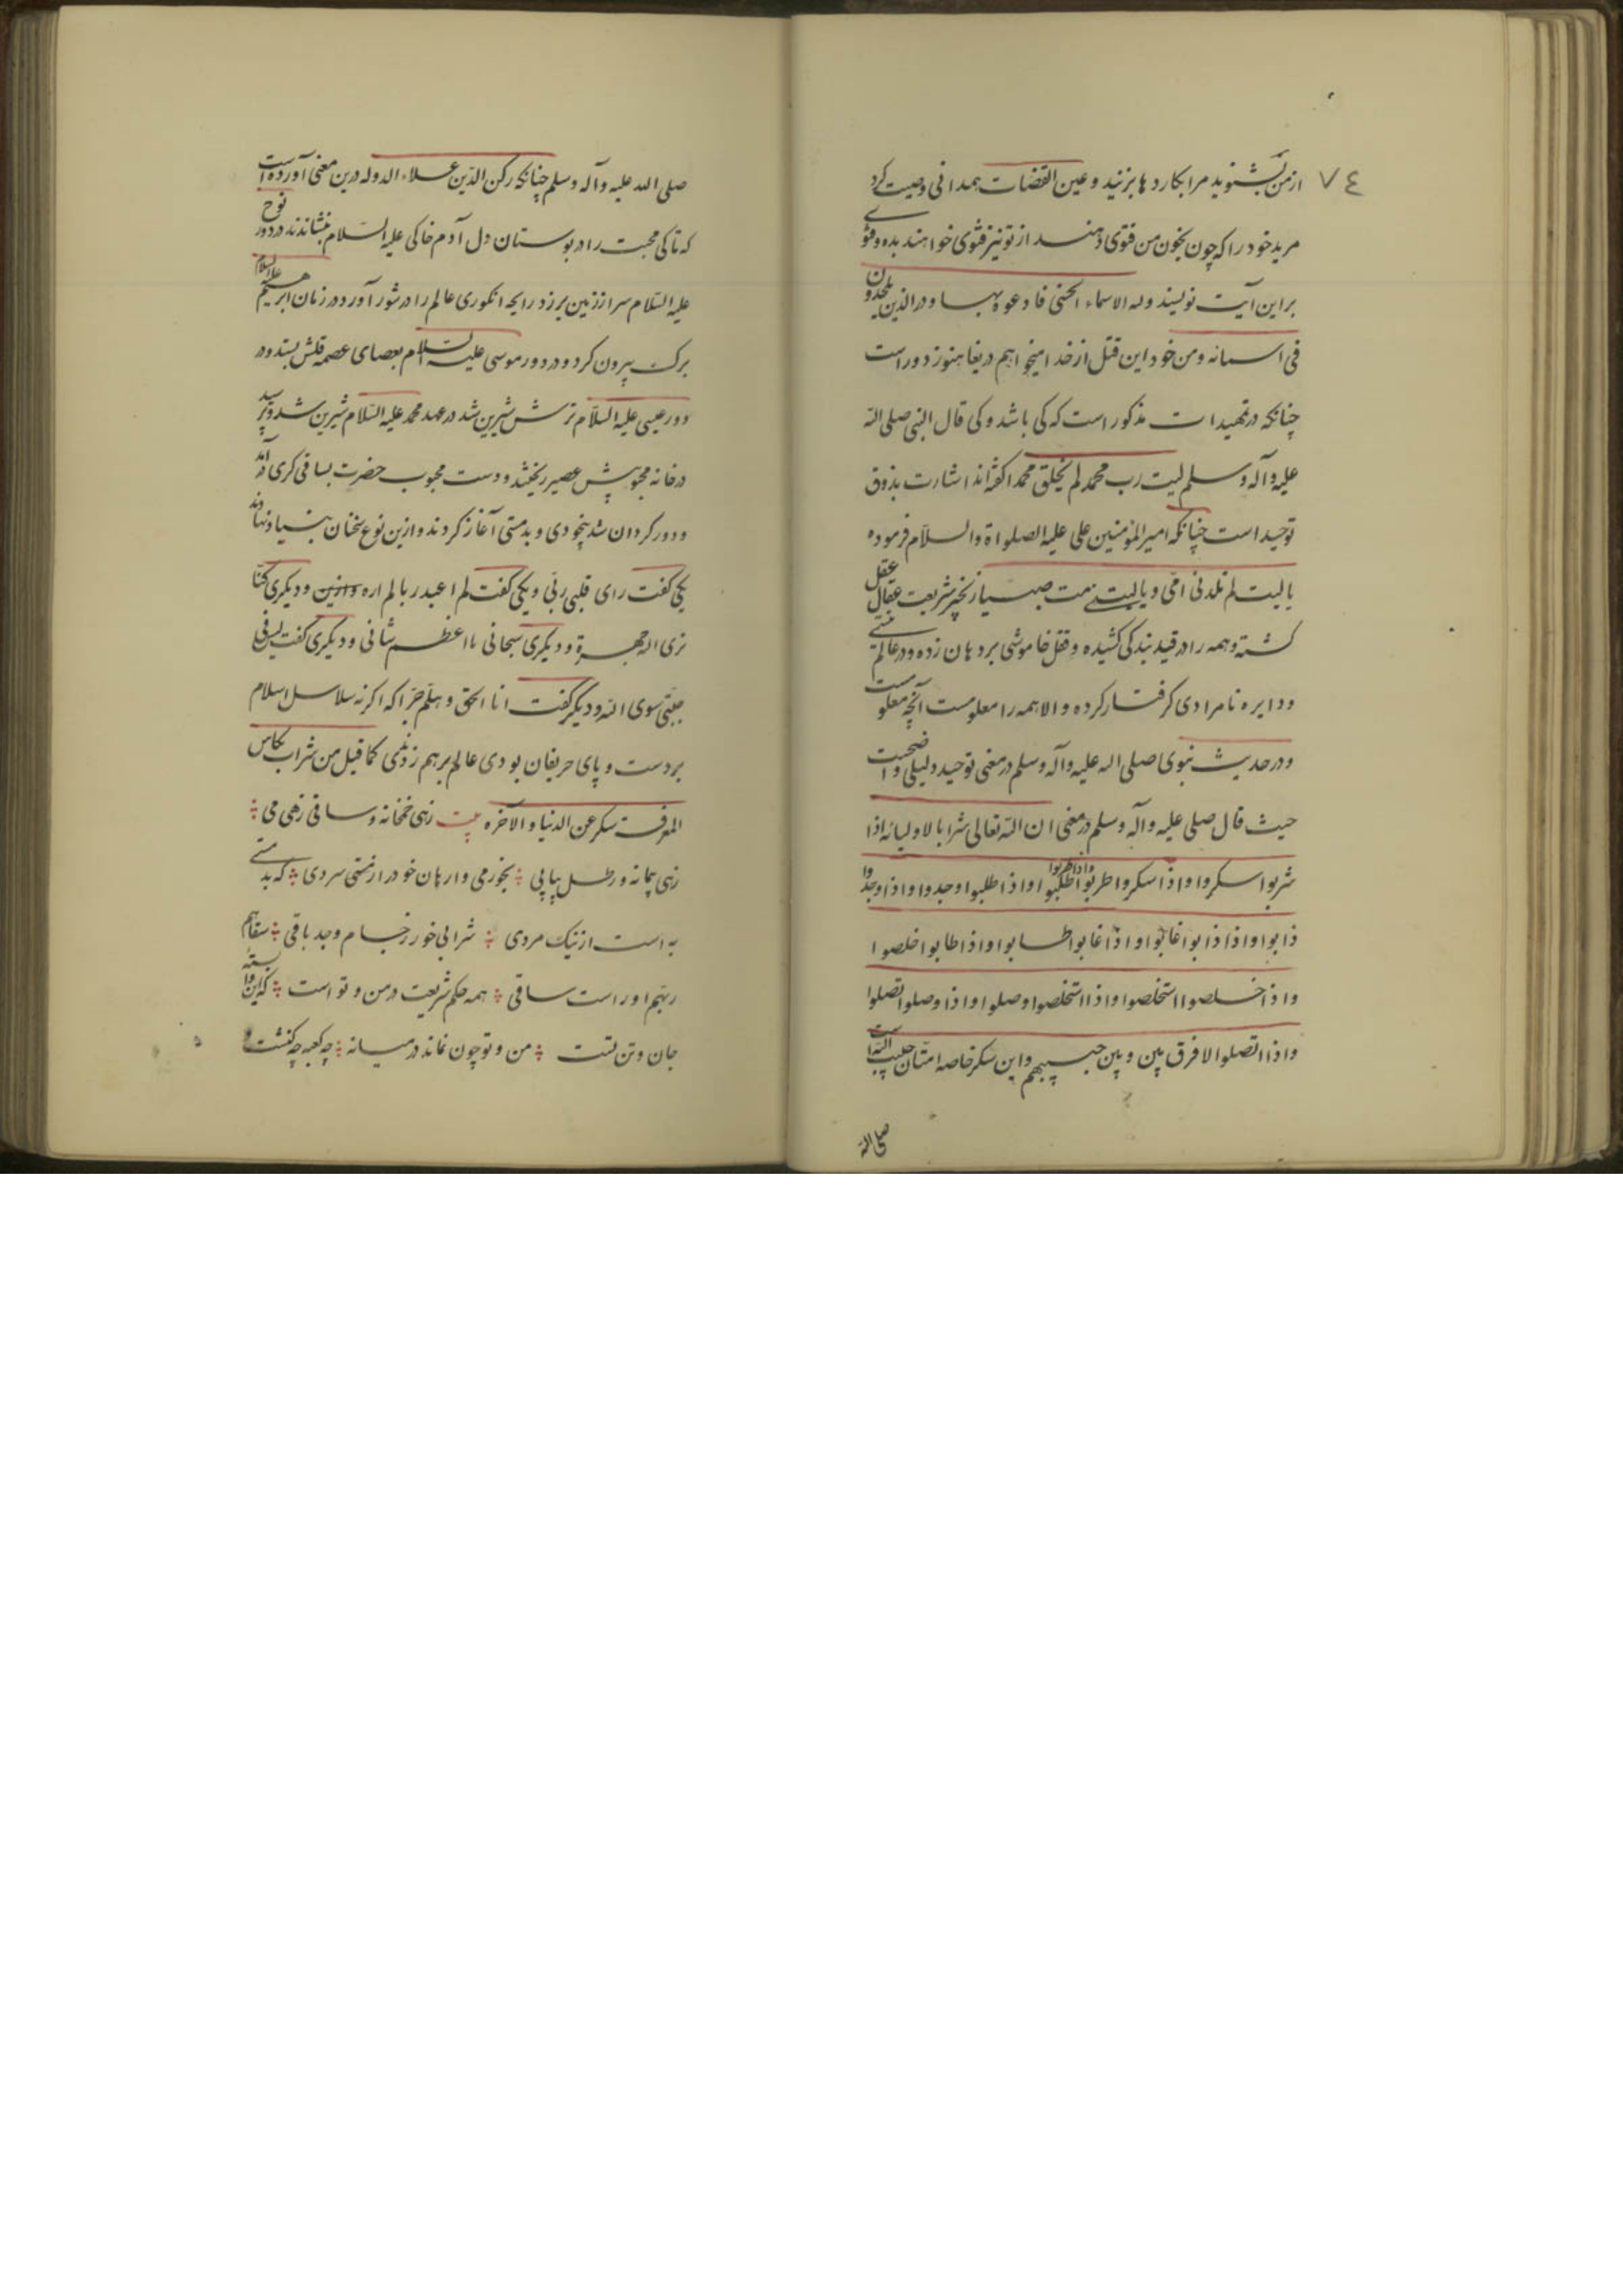 ٧٤
از من بشنوید مرا بکاردها بزنید و عین القضات همدانی وصیت کرد
مرید خود را که چون بخون من فتوی دهند از تو نیز فتوی خواهند بده و فتوی
براین آیت نویسند وله الاسماء الحسنی فادعوه بها و ذر الذین یلحدون
فی اسمائه و من خود این قتل از خدا میخواهم دریغا هنوز دور است
چنانکه در تمهیدات مذکور است که کی باشد و کی قال النبی صلی الله
علیه و آله و سلم لیت رب محمد لم یخلق محمدا گفته اند اشارت بذوق
توحید است چنانکه امیر المؤمنین علی علیه الصلواة والسلام فرموده
یا لیت لم تلدنی امی و یا لیتنی مت صبیا زنجیر شریعت عقال عقل
گشته و همه را در قید بندگی کشیده و قفل خاموشی بر دهان زده و در عالم
و دایره نامرادی گرفتار کرده و الا همه را معلومست آنچه معلومست
و در حدیث نبوی صلی الله علیه وآله وسلم در معنی توحید دلیلی واضحست
حیث قال صلی علیه و آله و سلم در معنی ان الله تعالی شرابا لاولیائه اذا
شربوا سکروا و اذا سکروا طربوا و اذا طربوا طلبوا و اذا طلبوا وجدوا و اذا وجدوا
ذابوا و اذا ذابوا غابوا و اذا غابوا طابوا و اذا طابوا خلصوا
و اذا خلصوا استخلصوا و اذا استخلصوا وصلوا و اذا وصلوا اتصلوا
و اذا اتصلوا لا فرق بین و بین حبیبهم و این سکر خاصه امتان حبیب الله است
صلی الله
صلی الله علیه وآله وسلم چنانکه رکن الدین علاء الدوله درین معنی آورده است
که تاکی محبت را در بوستان دل آدم خاکی علیه السلام بنشاندند در دور نوح
علیه السلام سر از زمین برزد رایحه انگوری عالم را در شور آورد در زمان ابرهیم علیه السلام
برک بیرون کرد و در دور موسی علیه السلام بعصای عصمه قلش بستند و در
دور عیسی علیه السلام ترش شیرین شد در عهد محمد علیه السلام شیرین شد و برسید
در خانه محبوبش عصیر ریختند و دست محبوب حضرت بساقی کری درآمد
و دور کردان شد بیخودی و بدمستی آغاز کردند و ازین نوع سخنان بنیاد نهادند
یکی گفت رای قلبی ربی و یکی گفت لم اعبد ربا لم اره و دیگری گفتا
نری الله جهرة و دیگری سبحانی ما اعظم شانی و دیگری گفت لیس فی
جبتی سوی الله و دیگر گفت انا الحق و هلم جرا که اگر نه سلاسل اسلام
بر دست و پای حریفان بودی عالم برهم زدندی کما قیل من شراب بکاس
المعرفت سکر عن الدنیا والآخره بیت زهی خمخانه و ساقی زهی می
زهی پیمانه و رطل پیاپی بخور می وارهان خود را ز سردی که بدمستی
به است از نیک مردی شرابی خور ز جام وجه باقی سقاهم
ربهم او راست ساقی همه حکم شریعت در من و تو است که این وابسته
جان و تن تست من و تو چون نماند در میانه چه کعبه چه کنشت